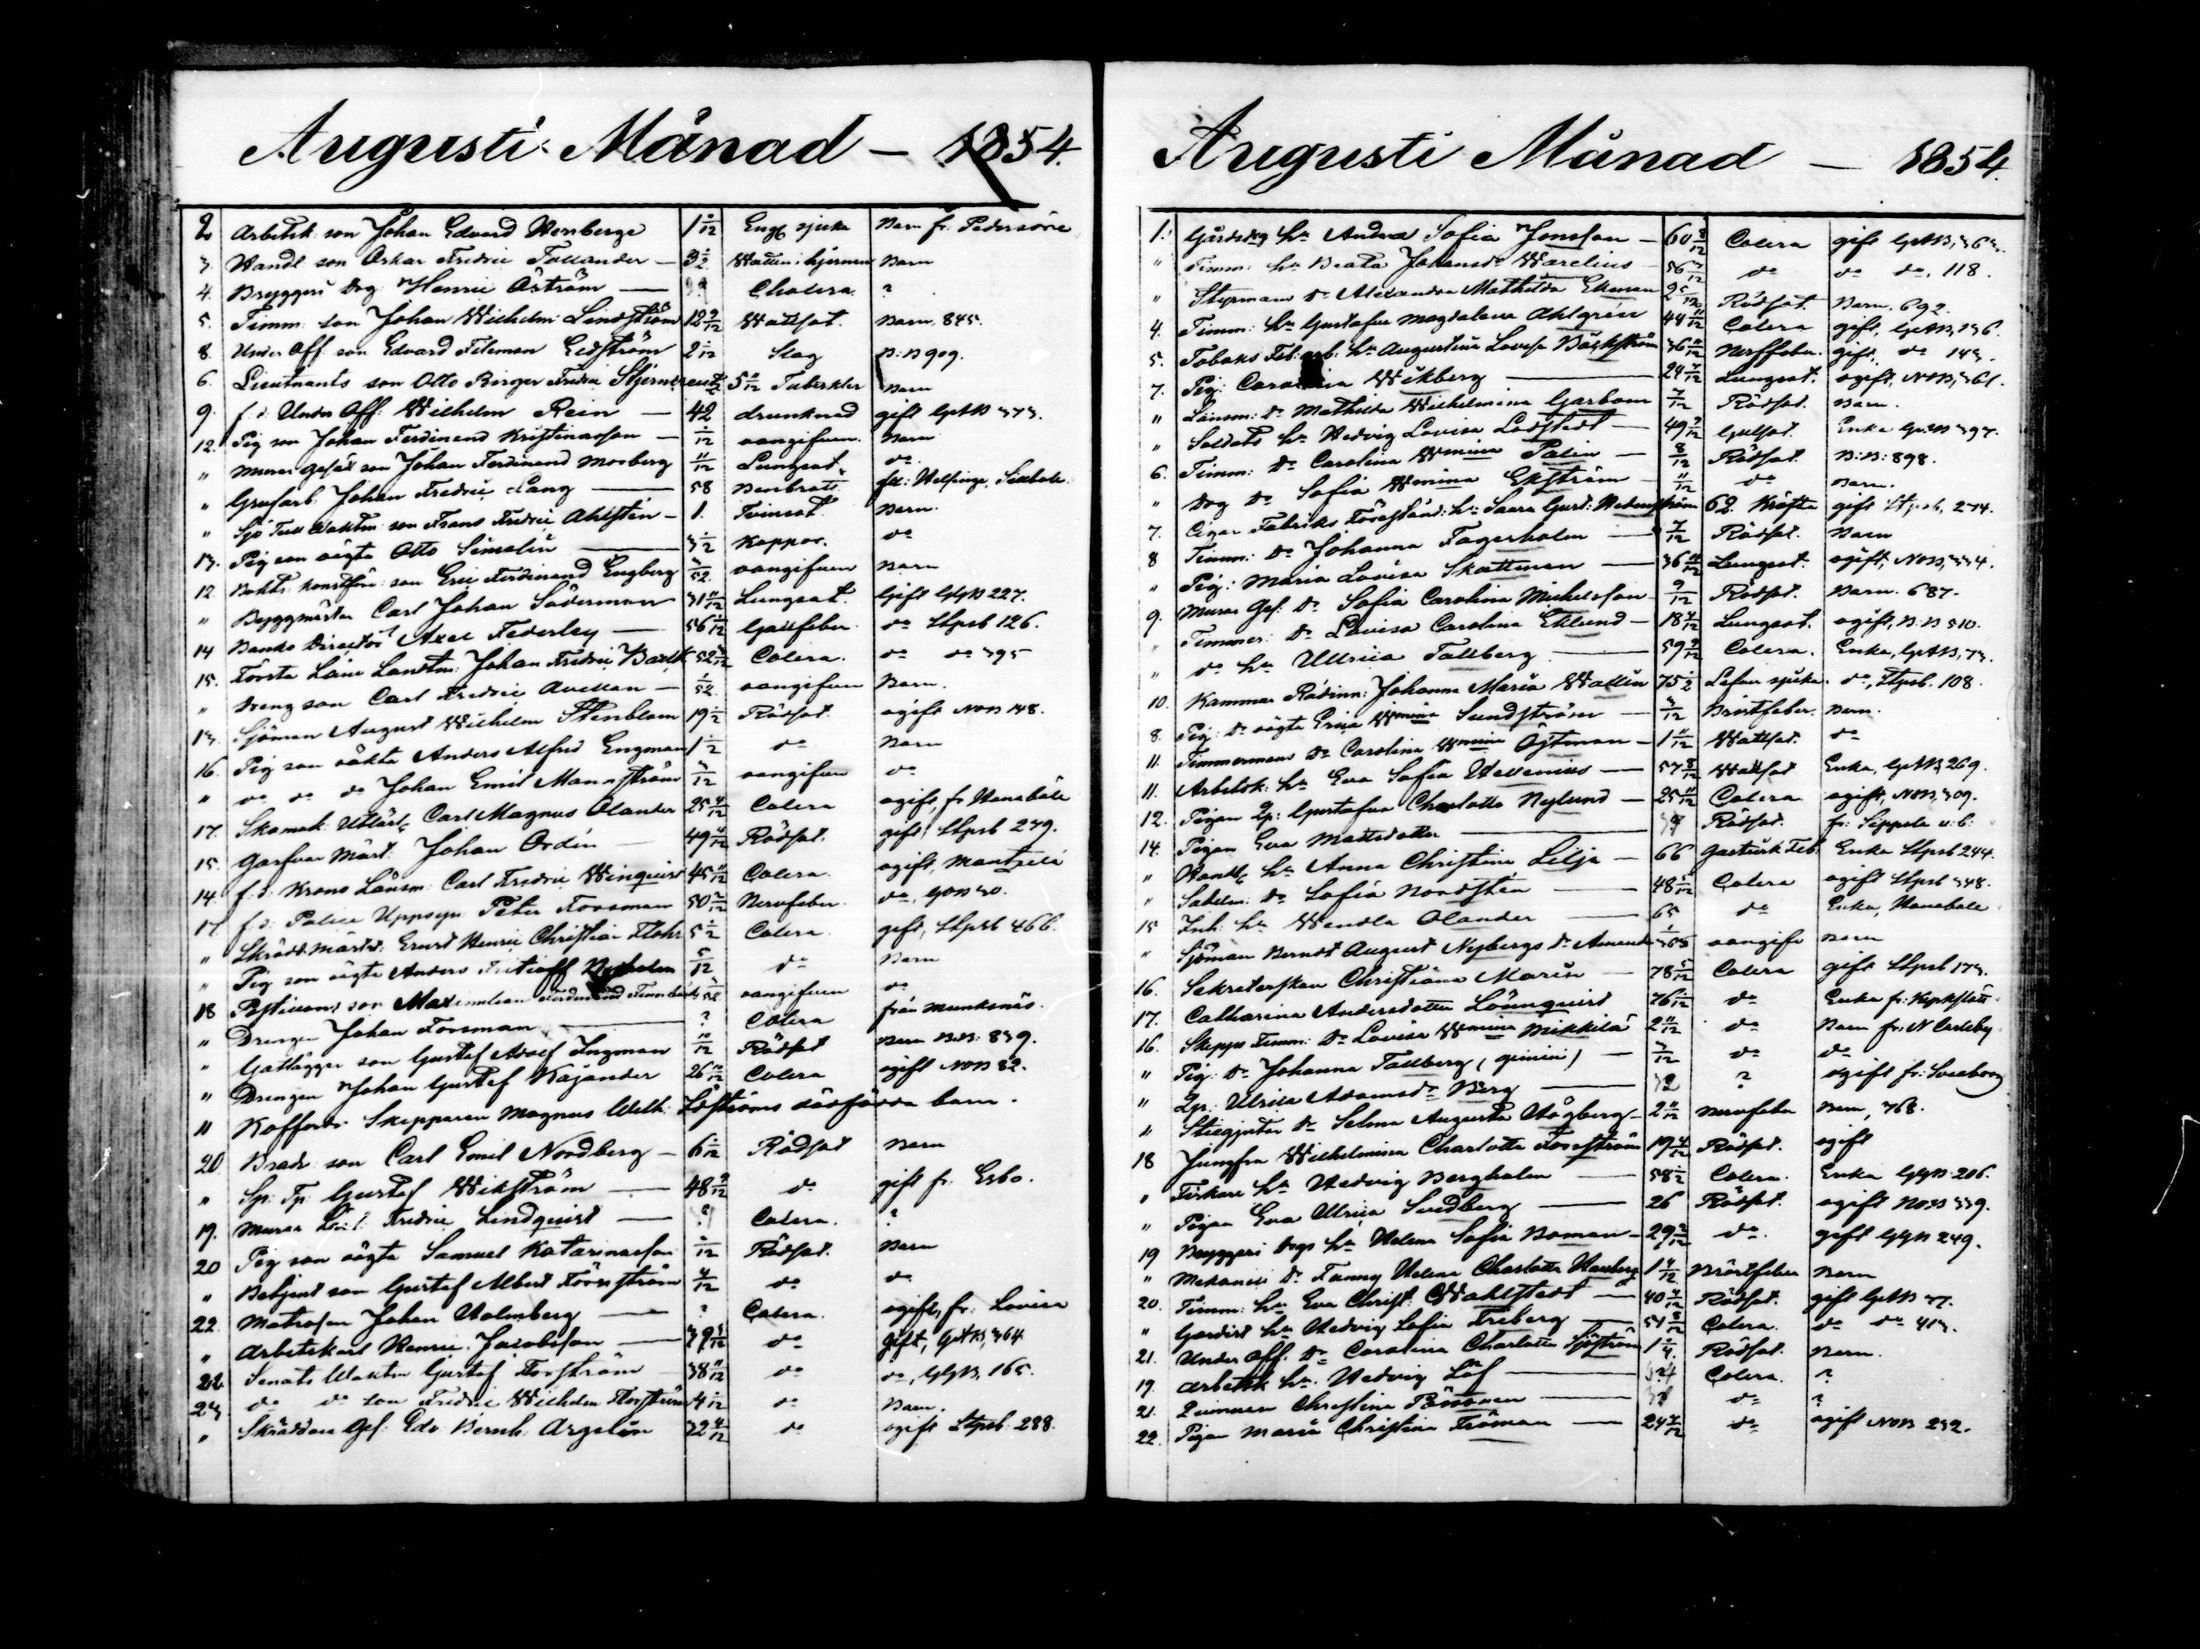 Augusti Månad — 1854.
2. Arbetsk: son Johan Edvard Wenberge 1 /12 Engl sjuka Barn fr: Pedersöre
3. Handl son Oskar Fredric Tallander — 3 /12 Watten i hjernan Barn
4. Bryggeri Dreg Henric Åström — ?? Cholera ?
5. Timm: son Johan Wilhelm Lindström 12 9/12 Wattsot. Barn 845.
8. Under Off: son Edvard Fileman Lidström 2 /12 Slag B:B 909.
6. Lieutnants son Otto Birger Fredric 5 /12 Tuberkler Barn
9. f. d: Under Off: Wilhelm Rein — 42 drunknad gift GAB 373.
12. Pig son Johan Ferdinand Kristinasson — /12 oangifven. Barn
" Murar Gesäl son Johan Ferdinand Mosberg 11/12 Lungsot. do
" Grofarb: Johan Fredric Lang — 58 Benbrott Helsinge,
" Sjö Tull Waktm: son Frans Fredric Ahlsten — 1. Tvinsot. Barn.
13. Pig son oägta Otto Simolin — 3/12 Koppor. do
12. son Eric Ferdinand Engberg 3/52 oangifven Barn
" Byggmästar Carl Johan Söderman 31 11/12 Lungsot. Gift GGB 227.
14 Banko Director Axel Federley — 56 /12 Gallfeber do Stpsb 126.
15. Första Läne Landtm: Johan Fredric 52 /12 Colera. do do 395
" Dreng son Carl Fredric Avellan — 1/52 oangifven Barn.
13. Sjöman August Wilhelm Stenblom 19 /12 Rödsot. ogift NOB 148.
16. Pig son oäkta Anders Alfred Engman 1 /12 do Barn
" do do do Johan Emil Mannström 3/12 oangifven do
17. Skomak: Utlärl Carl Magnus Olander 25 4/12 Colera ogift, fr Hanaböle
15. Garfvar Mäst: Johan Ordin — 49 4/12 Rödsot. gift Stpsb 279.
14. f. d: Krono Länsm: Carl Fredric Winquist 45 11/12 Colera. ogift, Mantzelä
17. f. d: Police Uppsyn Peter Forsman 50 2/12 Nervfeber. do, GOB 30.
" Skräd: Mäster: Ernst Henric Christian Flohr 5 /12 Colera. gift, Stpsb 466.
" Pig son oägta Anders Nyholm 5/12 do Barn
18 Postiljons son Maximilian Ferdinand oangifven do
" Drengen Johan Forsman — ? Colera från Munksnäs.
" Gatlägger son Gustaf Adolf Ingman 10/12 Rödsot Barn B:B: 839.
" Drengen Johan Gustaf Kajander 26 10/12 Colera ogift NOB 82.
" Skepparen Magnus Wilh: Löfströms dödfödda barn.
20 son Carl Emil Nordberg — 6/12 Rödsot Barn
" Sp: Tp: Gustaf Wikström — 48 9/12 do gift fr: Esbo.
19. Murar Fredric Lindquist — ? Colera. ?
20 Pig son oägta Samuel Katarinasson /12 Rödsot. Barn
" Betjent son Gustaf Albert Förnström 4/12 do do
22. Matrosen Johan Holmberg — ? Colera. ogift, fr: Lovisa
" Arbetskarl Henric Jacobsson — 39 5/12 do Gift, GAB, 364
22. Senats Waktm Gustaf Forström 38 11/12 do do, GGB, 165.
23. do do son Fredric Wilhelm Forström 4 /12 do Barn.
" Skräddare Gesl: Edv Bernh: Argelin 22 4/12 do ogift Stpsb: 288.
Augusti Månad — 1854.
1. Gårdsdrg hu Andrea Sofia Jonsson — 60 8/12 Colera gift GAB, 363.
" Timm: hu Beata Johansdr Warelius — 56 3/12 do do do, 118.
" Styrmans Dr Alexandra Mathilda Ekman 2 5/12 Rödsot. Barn, 692.
4. Timm: hu Gustafva Magdalena Ahlgren 44 11/12 Colera gift, GAB, 136.
5. Tobaks Fab: arb: hu Augustina Lovisa Bäckström 36 11/12 Nervfeber. gift, do 143.
7. Pig: Carolina Wikberg — 24 7/12 Lungsot. ogift, NOB, 361.
" Länsm: Dr Mathilda Wilhelmina Garbom 7/12 Rödsot. Barn.
" Soldats hu Hedvig Lovisa Lodstedt — 49 9/12 Gulsot. Enka GAB 397.
6. Timm: Dr Carolina Wmina Palin — 8/12 Rödsot. B:B: 898.
" Dreg Dr Sofia Wmina Ekström — 11/12 do Barn.
7. Cigar Fabriks Föreständ: hu Saara Gust: Hedenström 62 Kräfta gift Stpsb, 274.
8 Timm: Dr Johanna Fagerholm — 7/12 Rödsot. Barn
" Pig: Maria Lovisa Skattman — 36 11/12 Lungsot. ogift, NOB, 334.
9. Murar Ges: Dr Sofia Carolina Michelsson 9/12 Rödsot. Barn. 687.
" Timmer: Dr Lovisa Carolina Eklund — 18 4/12 Lungsot. ogift, B:B 510.
" do hu Ullrica Tallberg — 59 9/12 Colera. Enka, GAB, 73.
10. Kammar Rådinn: Johanna Maria Wallin 75 /12 Lefver sjuka. do, Stpsb. 108.
8. Pig: Dr oägta Erica Wmina Sundström — 3/12 Bröstfeber. Barn.
11. Timmermans Dr Carolina Wmina Öjtman — 1 11/12 Wattsot. do
11. Arbetsk: hu Eva Sofia Hellenius — 57 8/12 Wattsot Enka, GAB, 269.
12. Pigan Lp: Gustafva Charlotta Nylund — 25 11/12 Colera. ogift, NOB, 309.
14. Pigan Eva Mattsdotter — Rödsot. fr: Seppelä u. b:
" Handl hu Anna Christina Lilja — 66 Gastrisk Feb: Enka Stpsb 244.
" Dr Sofia Nordsten — 48 5/12 Colera ogift Stpsb 348.
15 Inh: hu Wendla Olander — 65 do Enka, Hanaböle
" Sjöman Berndt August Nybergs Dr Amanda 1/365 oangifv Barn
16. Sekreterskan Christiana Marin — 78 5/12 Colera gift Stpsb 173.
17. Catharina Andersdotter Lönnquist 76 /12 do Enka fr: Kyrkslätt.
16. Skepps Timm: Dr Lovisa Wmina Mikkilä 2 11/12 do Barn fr: N Carleby.
" Pig: Dr Johanna Tallberg (gemini) — 3/12 do do
" Lp: Ulrica Adamsdr Berg — 32 ? ogift fr: Sveaborg
" Dr Selma Augusta Högberg — 2 11/12 Nervfeber Barn, 768.
18 Jungfru Wilhelmina Charlotta Forsström 19 4/12 Rödsot. ogift
" hu Hedvig Bergholm — 58 /12 Colera. Enka GGB: 206.
" Pigan Eva Ulrica Sundberg — 26 Rödsot. ogift NOB 339.
19 Bryggeri Drgs hu Helena Sofia Boman — 29 2/12 do gift GGB 249.
" Mekanici Dr Fanny Helena Charlotta 1 4/12 Bröstfeber Barn
20. Timm: hu Eva Christ: Wahlstedt — 40 4/12 Rödsot. gift GAB 77.
" Gardist hu Hedvig Sofia Freberg — 51 8/12 Colera. do do 413.
21. Under Off: Dr Carolina Charlotta Sjöström 1 Rödsot. Barn.
19. Arbetsk hu: Hedvig Löf — Colera. ?
21. Christina Pänttonen — do ?
22. Pigan Maria Christina Fröman — 24 7/12 do ogift NOB 232.